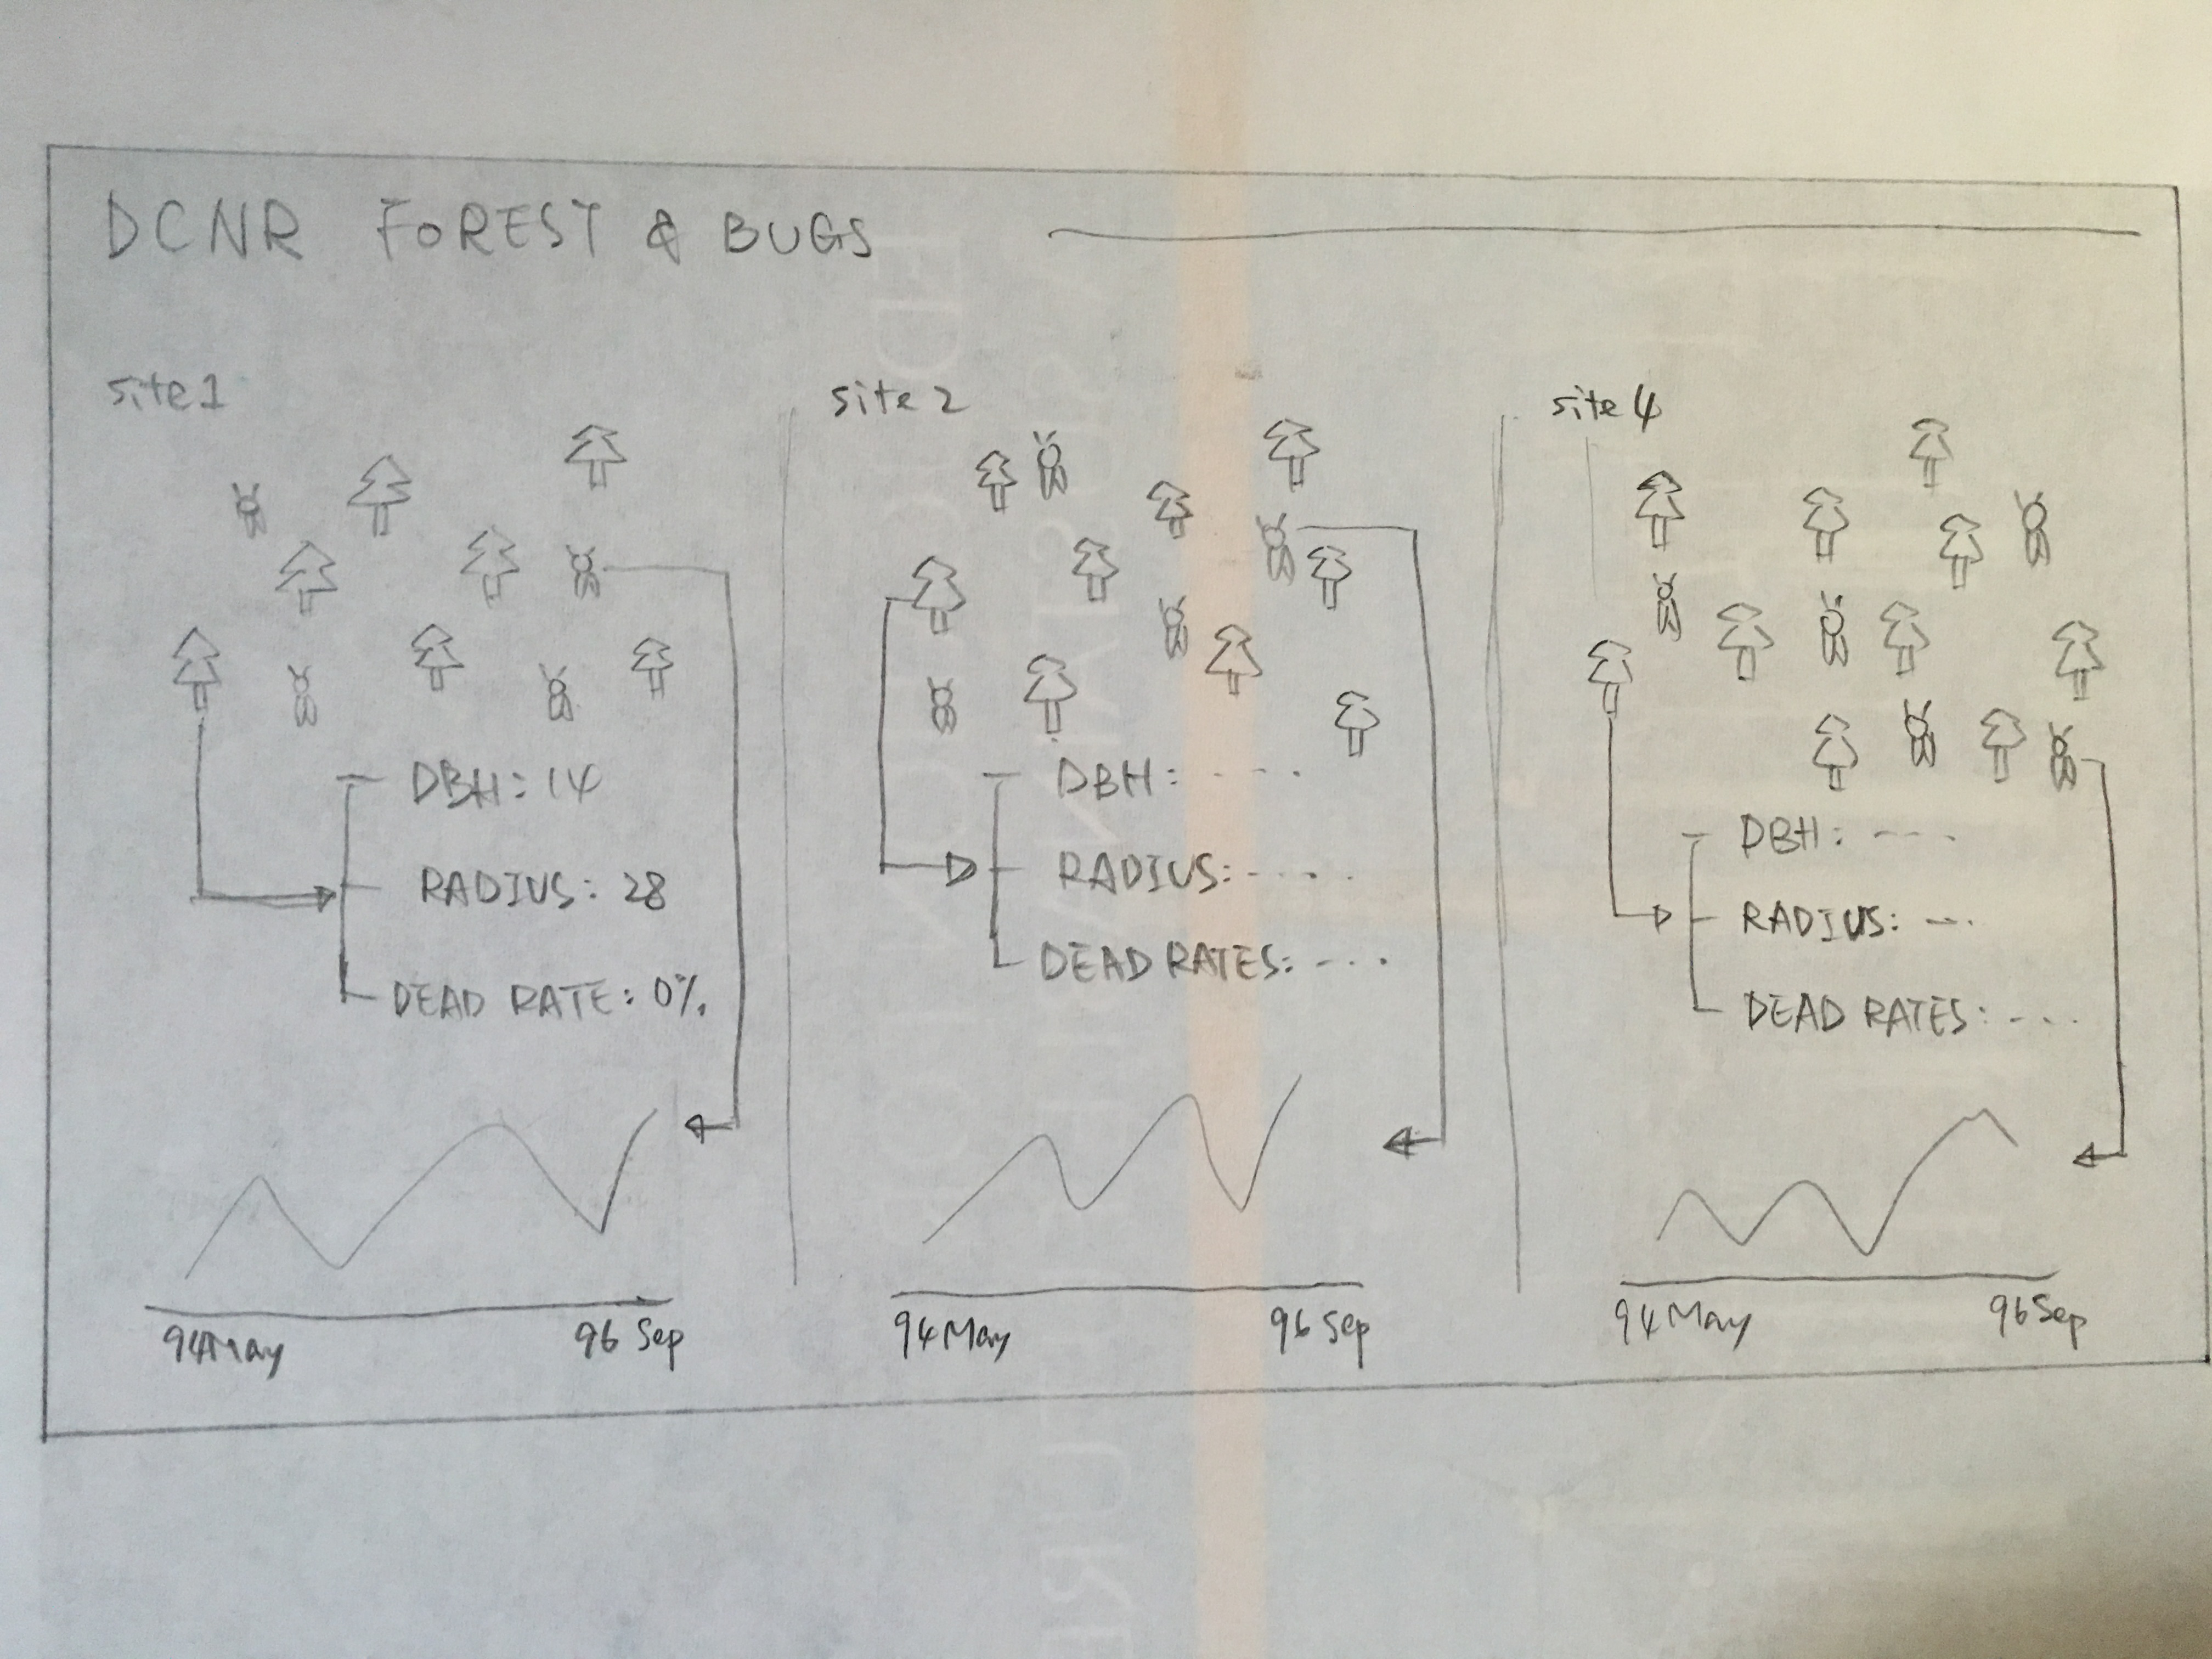 DCNR FOREST & BUGS
site 1
DBH: 14
RADIUS: 28
DEAD RATE: 0%
94 May 96 Sep
site 2
DBH: - - - -
RADIUS: - - - -
DEAD RATES: - - -
94 May 96 Sep
site 4
DBH: - - -
RADIUS: - - -
DEAD RATES: - - -
94 May 96 Sep